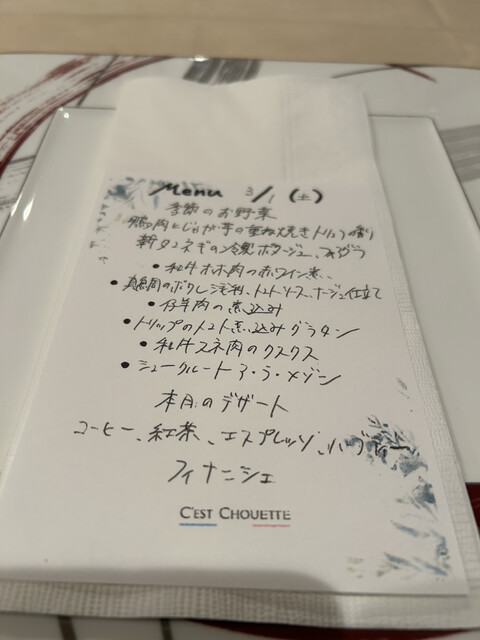 Menu 3/1 (土)
季節のお野菜
鴨肉とじゃが芋の重ね焼き トリュフの香り
新タマネギの冷製ポタージュ、フォアグラ
• 和牛ホホ肉の赤ワイン煮
• 真鯛のポワレ トマトソース、ナージュ仕立て
• 仔羊肉の煮込み
• トリップのトマト煮込みグラタン
• 和牛スネ肉のクスクス
• シュークルート ア・ラ・メゾン
本日のデザート
コーヒー、紅茶、エスプレッソ、ハーブティー
フィナンシェ
C'EST CHOUETTE